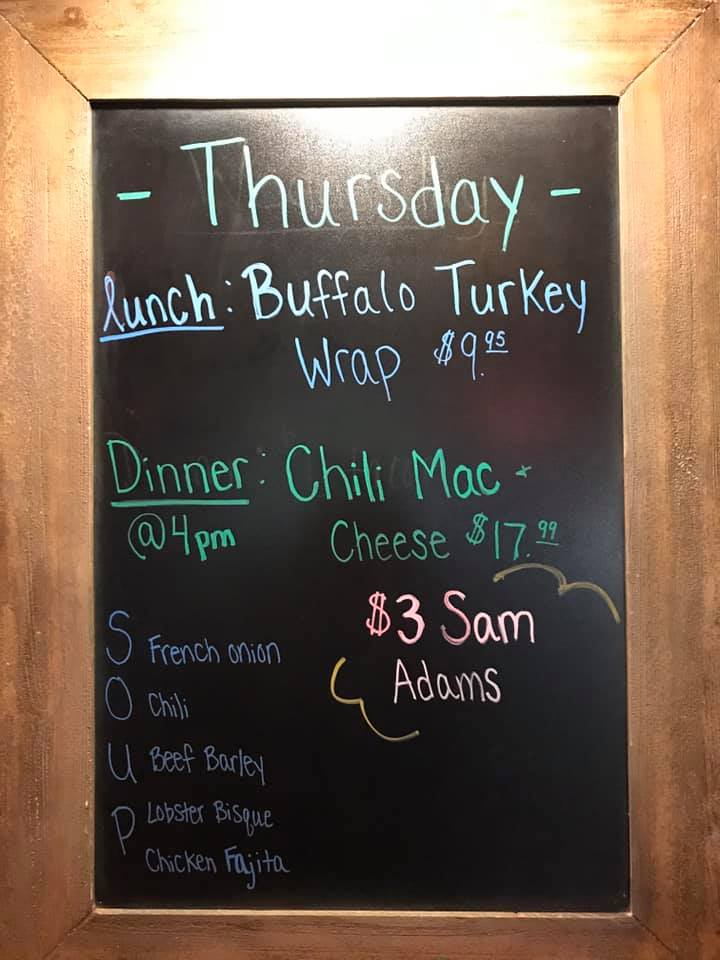 - Thursday -
lunch: Buffalo Turkey
Wrap $9.95
Dinner: Chili Mac +
@4pm Cheese $17.99
$3 Sam
Adams
SOUP
French onion
Chili
Beef Barley
Lobster Bisque
Chicken Fajita